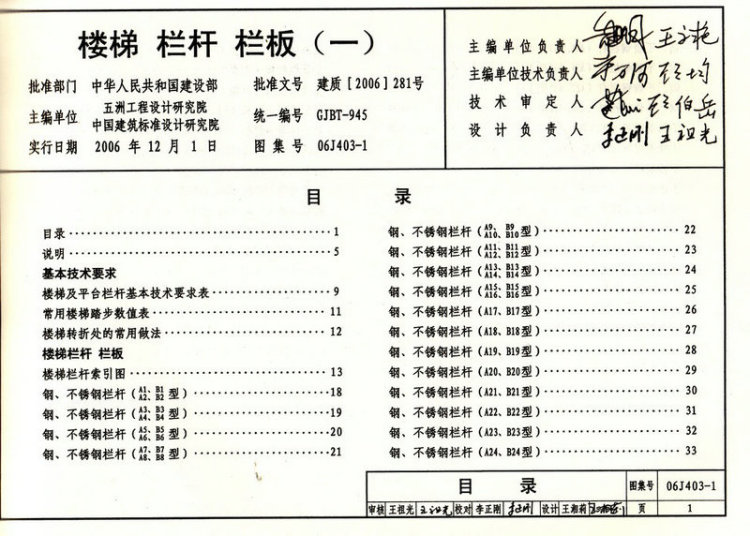 楼梯 栏杆 栏板（一）
批准部门 中华人民共和国建设部 批准文号 建质［2006］281号
主编单位 五洲工程设计研究院
中国建筑标准设计研究院 统一编号 GJBT-945
实行日期 2006 年 12 月 1 日 图集号 06J403-1
主编单位负责人
主编单位技术负责人
技术审定人
设计负责人 李正刚 王祖光
目 录
目录 1
说明 5
基本技术要求
楼梯及平台栏杆基本技术要求表 9
常用楼梯踏步数值表 11
楼梯转折处的常用做法 12
楼梯栏杆 栏板
楼梯栏杆索引图 13
钢、不锈钢栏杆（A1、B1 A2、B2 型） 18
钢、不锈钢栏杆（A3、B3 A4、B4 型） 19
钢、不锈钢栏杆（A5、B5 A6、B6 型） 20
钢、不锈钢栏杆（A7、B7 A8、B8 型） 21
钢、不锈钢栏杆（A9、B9 A10、B10 型） 22
钢、不锈钢栏杆（A11、B11 A12、B12 型） 23
钢、不锈钢栏杆（A13、B13 A14、B14 型） 24
钢、不锈钢栏杆（A15、B15 A16、B16 型） 25
钢、不锈钢栏杆（A17、B17型） 26
钢、不锈钢栏杆（A18、B18型） 27
钢、不锈钢栏杆（A19、B19型） 28
钢、不锈钢栏杆（A20、B20型） 29
钢、不锈钢栏杆（A21、B21型） 30
钢、不锈钢栏杆（A22、B22型） 31
钢、不锈钢栏杆（A23、B23型） 32
钢、不锈钢栏杆（A24、B24型） 33
目 录 图集号 06J403-1
审核 王祖光 王祖光 校对 李正刚 李正刚 设计 王湘莉 页 1